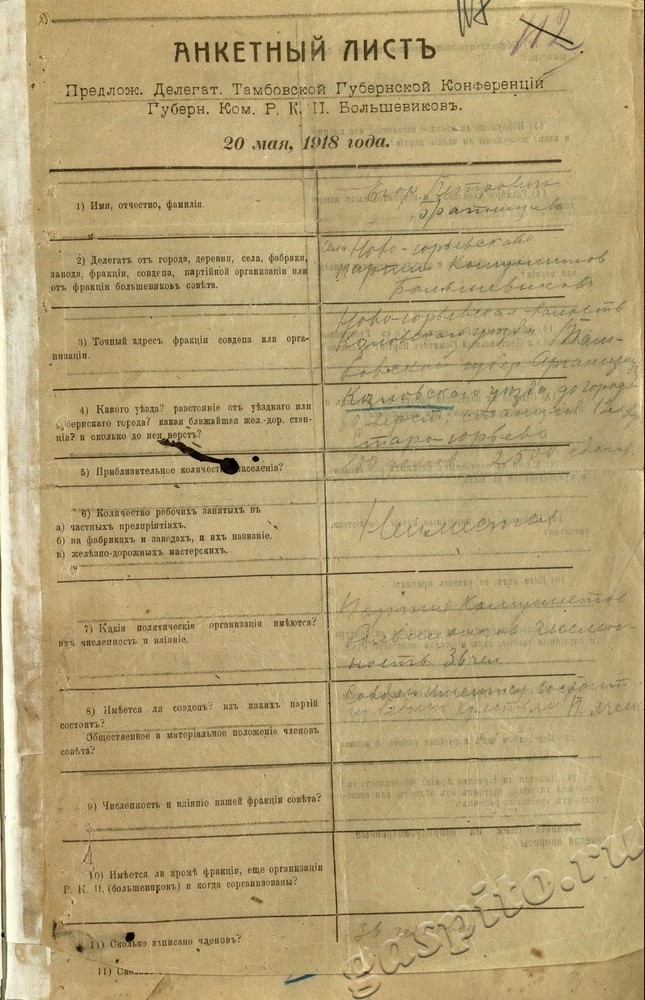 112
АНКЕТНЫЙ ЛИСТЪ
Предлож. Делегат. Тамбовской Губернской Конференцій
Губерн. Ком. Р. К. П. Большевиковъ.
20 мая, 1918 года.
1) Имя, отчество, фамилія.
Егор Петрович
2) Делегатъ отъ города, деревни, села, фабрики,
завода, фракціи, совдепа, партійной организаціи или
отъ фракціи большевиковъ совѣта.
Села Ново-Юрьевскаго
партии Комунистов
Большевиков
3) Точный адресъ фракціи совдепа или орга-
низаціи.
Ново-Юрьевская волость
Козловскаго уезда Там-
бовской губер
4) Какого уѣзда? разстояніе отъ уѣзднаго или
губернскаго города? какая ближайшая жел.-дор. стан-
ція? и сколько до нея верстъ?
Козловскаго уезда до города
верст станция 12
Старо-Юрьево
5) Приблизительное количество населенія?
800 2500
6) Количество рабочихъ занятыхъ въ
а) частныхъ предпріятіяхъ.
б) на фабрикахъ и заводахъ, и ихъ названіе.
в) желѣзно-дорожныхъ мастерскихъ.
Неимеется
7) Какія политическія организаціи имѣются?
ихъ численность и вліяніе.
Партия Комунистов
числен-
ность 36 чел.
8) Имѣется ли совдепъ? изъ какихъ партій
состоитъ?
Общественное и матеріальное положеніе членовъ
совѣта?
Совдеп имеется состоит
9) Численность и вліяніе нашей фракціи совѣта?
10) Имѣется ли кромѣ фракціи, еще организаціи
Р. К. П. (большевиковъ) и когда сорганизованы?
11) Сколько записано членовъ?
36 человек
11)
gaspito.ru